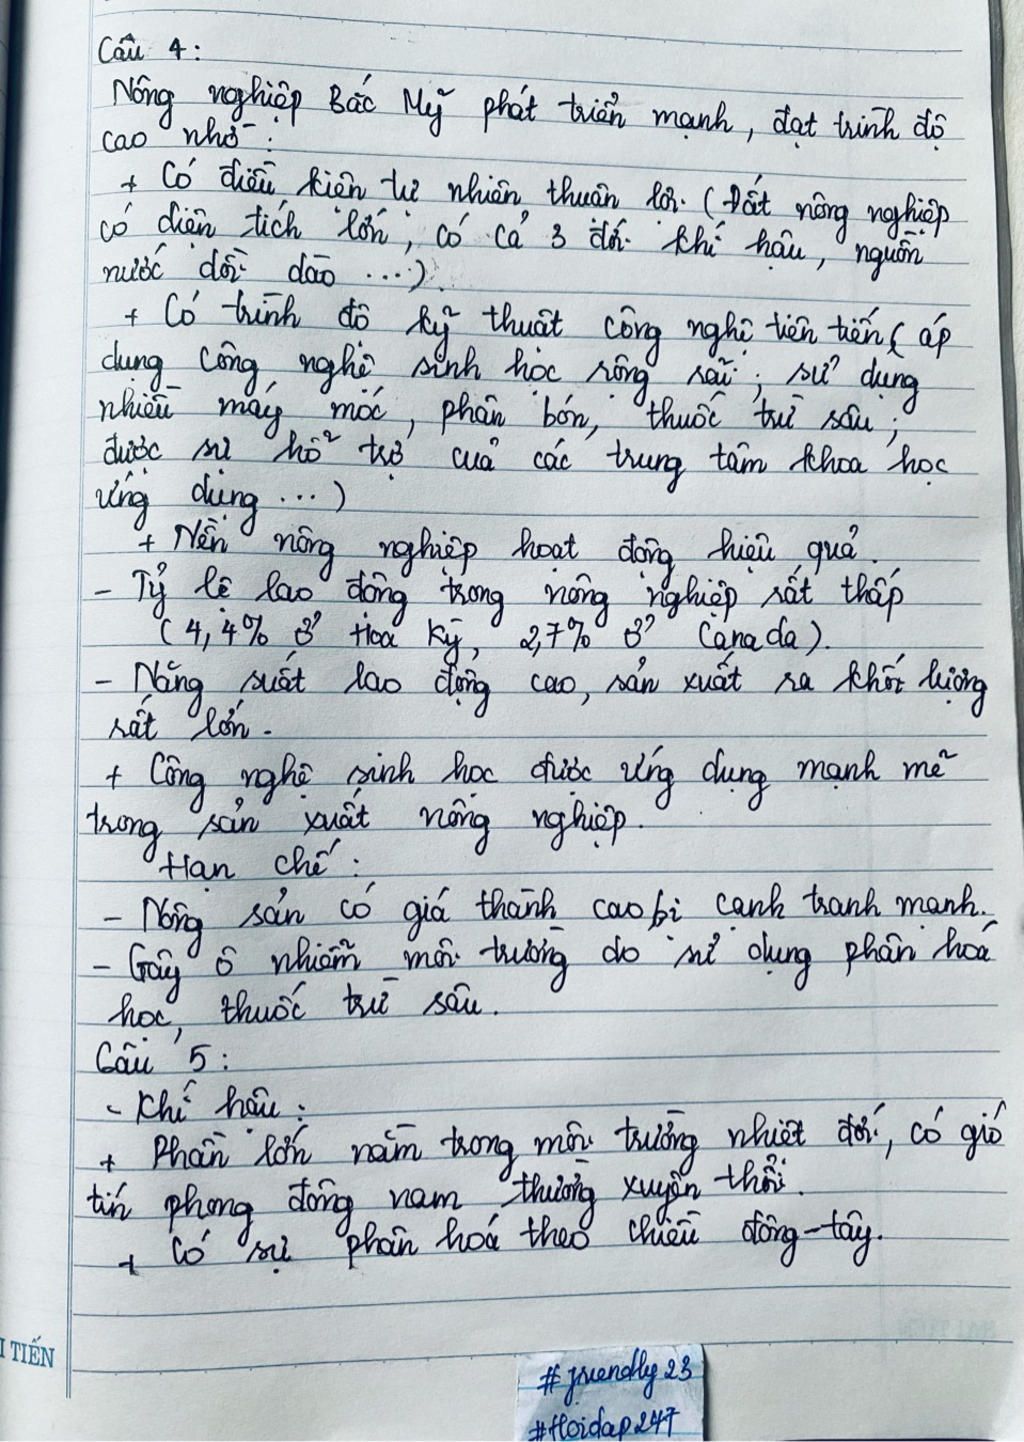 Câu 4:
Nông nghiệp Bắc Mỹ phát triển mạnh, đạt trình độ
cao nhờ:
+ Có điều kiện tự nhiên thuận lợi (Đất nông nghiệp
có diện tích lớn, có cả 3 đới khí hậu, nguồn
nước dồi dào ....).
+ Có trình độ kỹ thuật công nghệ tiên tiến ( áp
dụng công nghệ sinh học rộng rãi; sử dụng
nhiều máy móc, phân bón, thuốc trừ sâu;
được sự hỗ trợ của các trung tâm khoa học
ứng dụng ...)
+ Nền nông nghiệp hoạt động hiệu quả.
- Tỷ lệ lao động trong nông nghiệp rất thấp
(4,4% ở Hoa Kỳ, 2,7% ở Canada).
- Năng suất lao động cao, sản xuất ra khối lượng
rất lớn.
+ Công nghệ sinh học được ứng dụng mạnh mẽ
trong sản xuất nông nghiệp.
Hạn chế:
- Nông sản có giá thành cao bị cạnh tranh mạnh.
- Gây ô nhiễm môi trường do sử dụng phân hoá
học, thuốc trừ sâu.
Câu 5:
- Khí hậu:
+ Phần lớn nằm trong môi trường nhiệt đới, có gió
tín phong đông nam thường xuyên thổi.
+ Có sự phân hoá theo chiều đông-tây.
I TIẾN
#friendly23
#Hoidap247